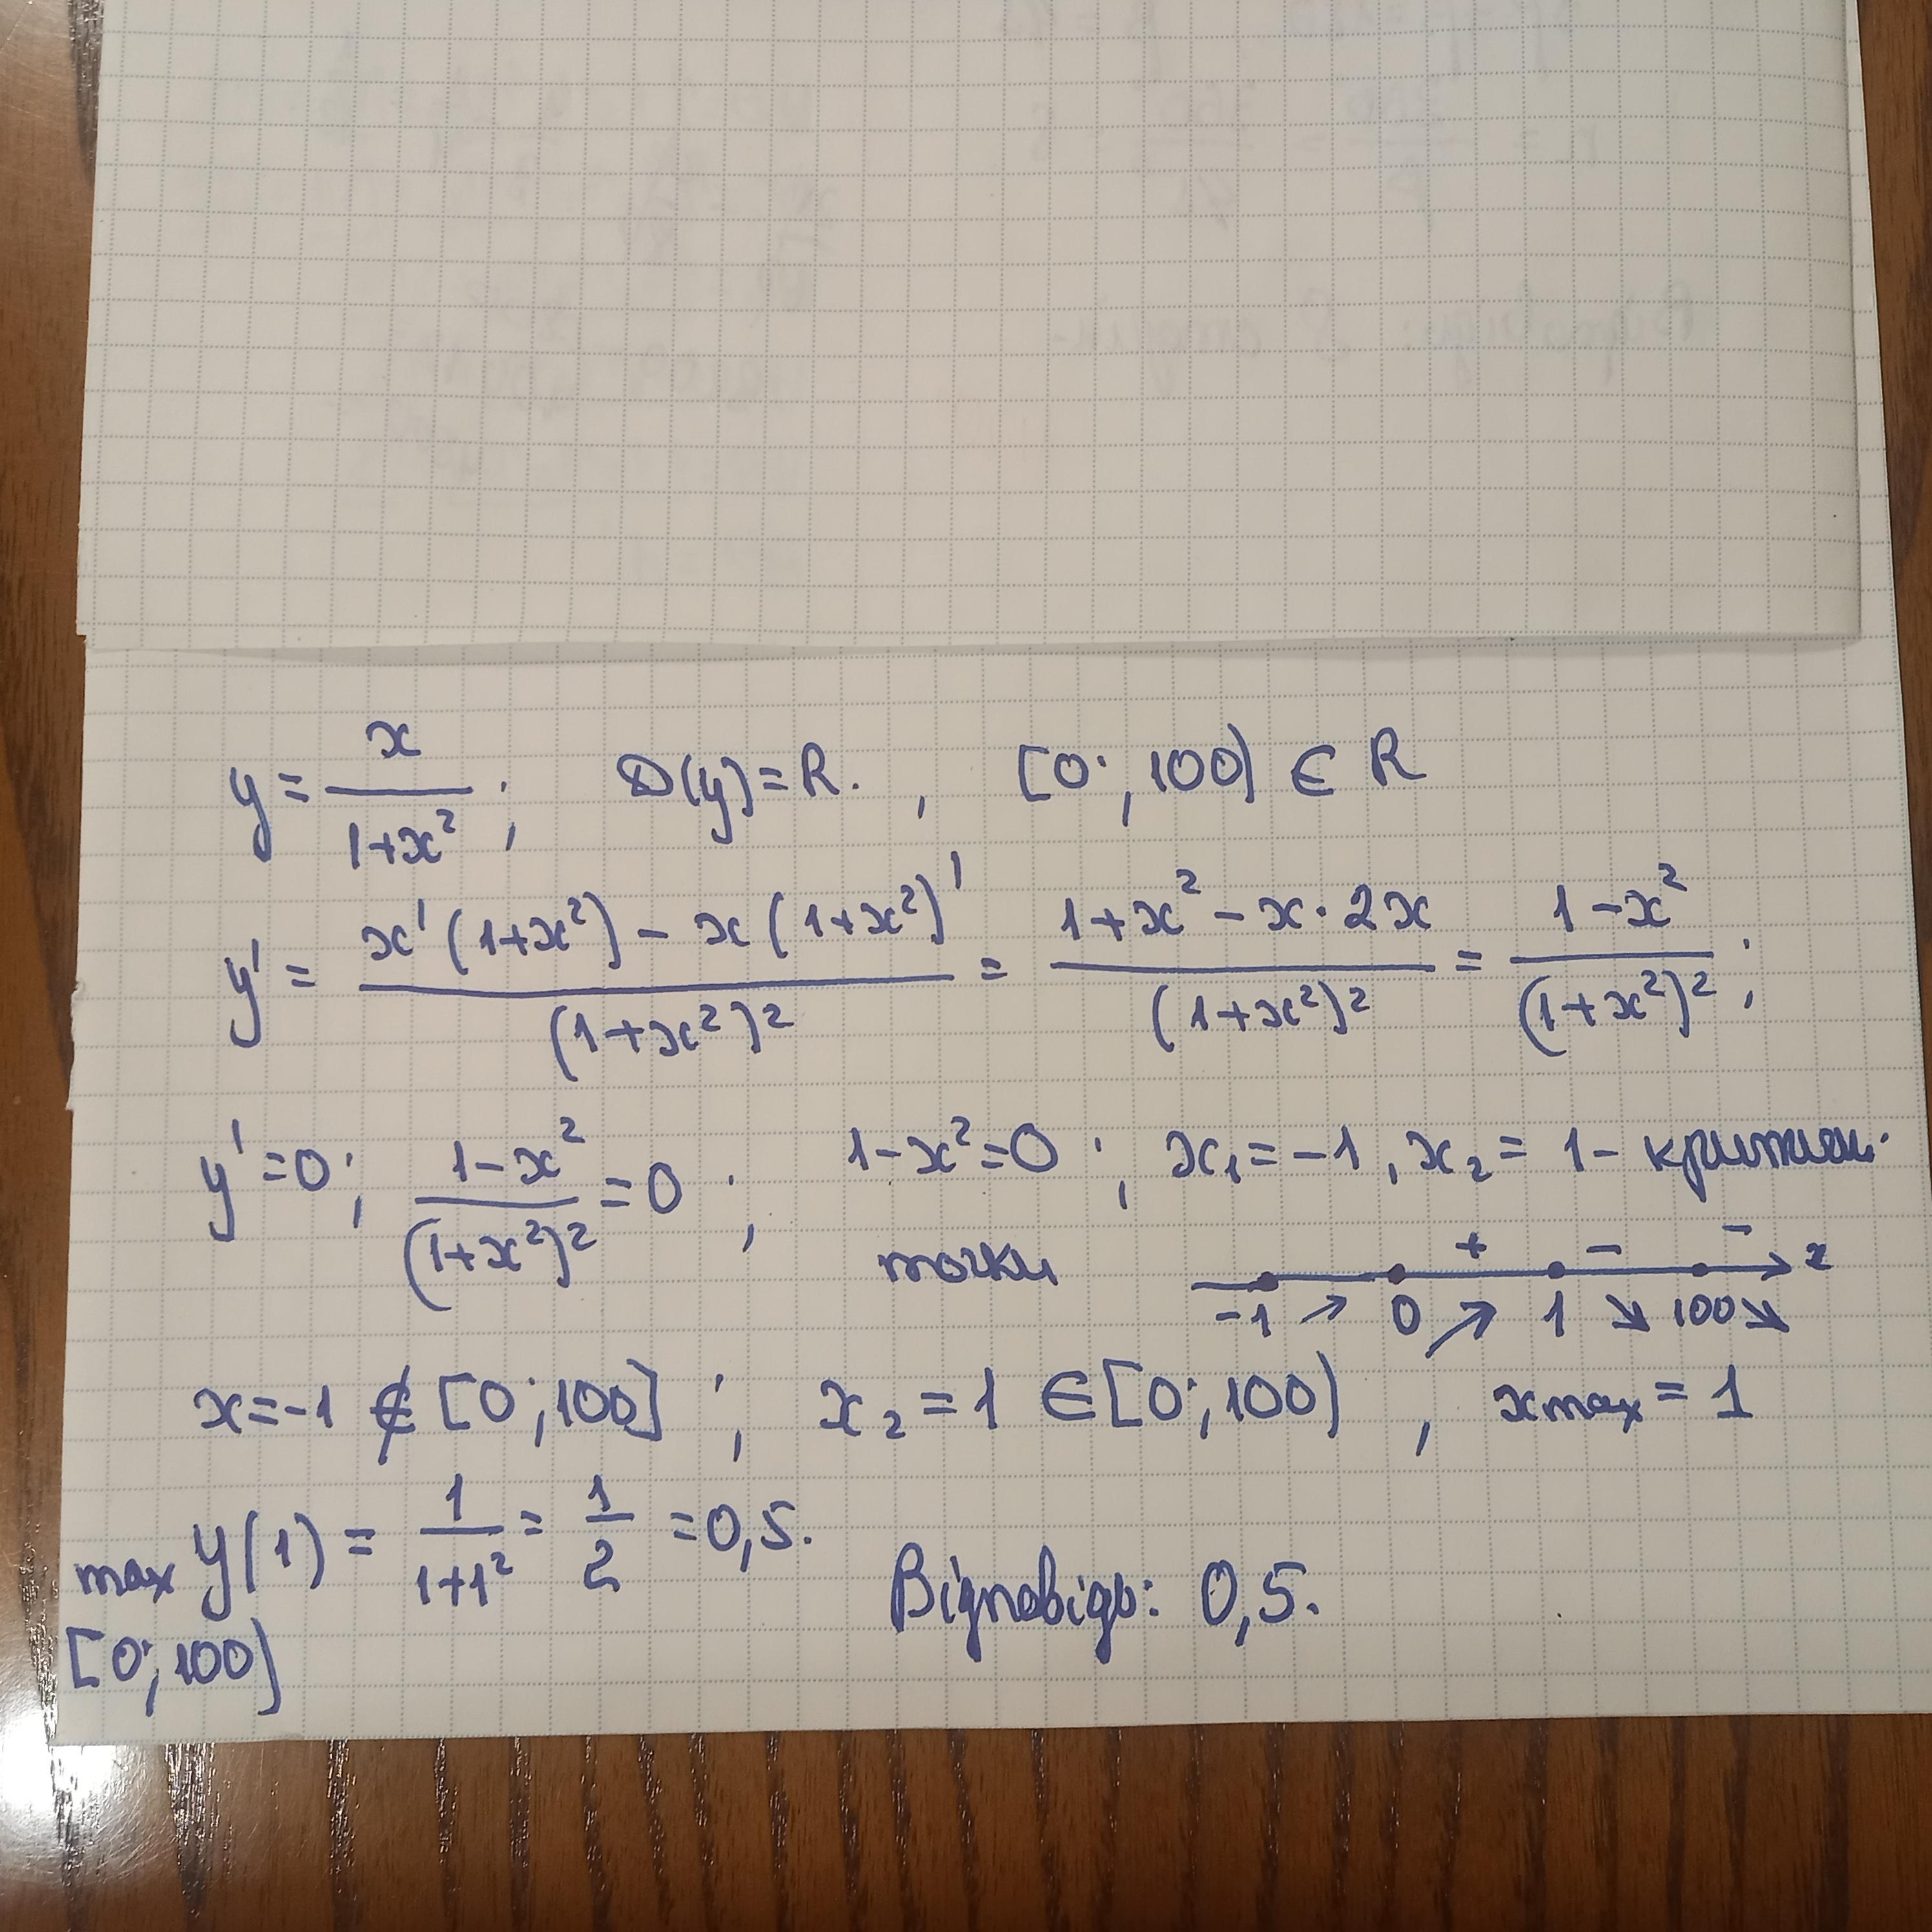 y = x/(1+x²); D(y)=R. , [0; 100] ∈ R
y' = (x'(1+x²) - x(1+x²)')/(1+x²)² = (1+x² - x·2x)/(1+x²)² = (1-x²)/(1+x²)²;
y'=0; (1-x²)/(1+x²)² = 0; 1-x²=0; x₁=-1, x₂= 1-
точки + - - x
-1 ↗ 0 ↗ 1 ↘ 100 ↘
x=-1 ∉ [0; 100]; x₂ = 1 ∈ [0; 100], xmax = 1
max y(1) = 1/(1+1²) = 1/2 = 0,5.
[0; 100]
Відповідь: 0,5.